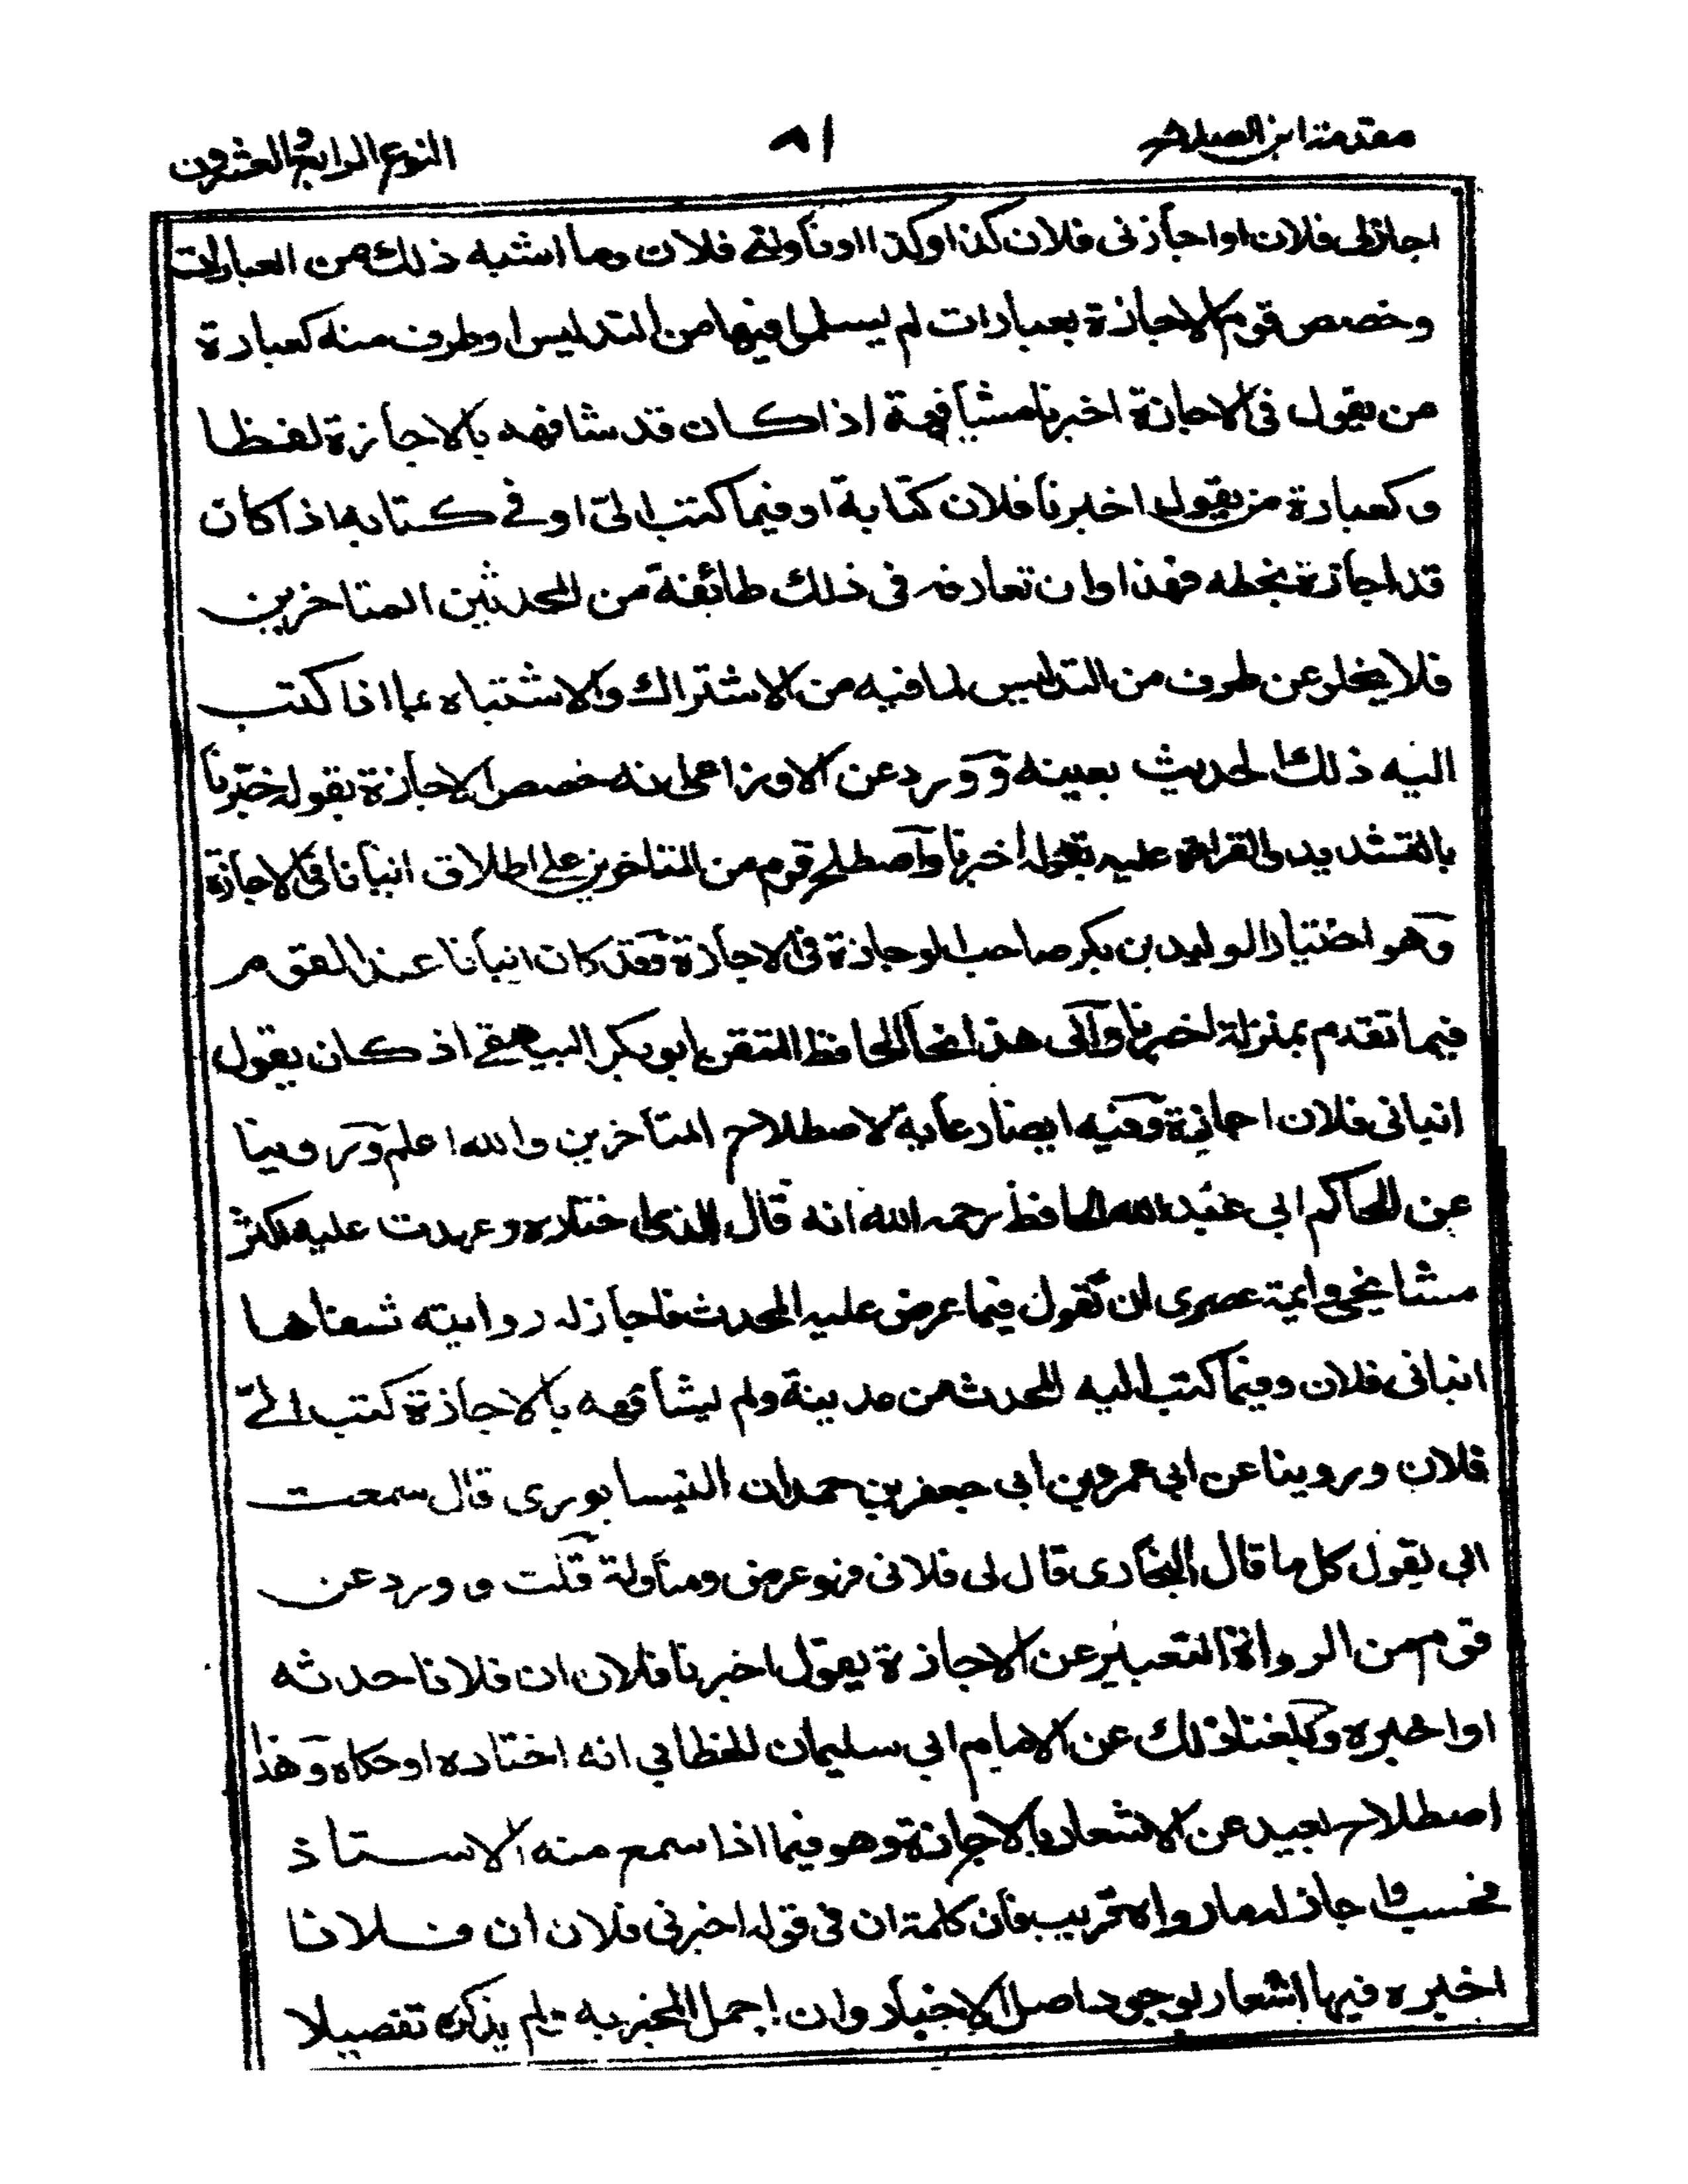 مقدمة ابن الصلاح ٨١ النوع الرابع والعشرون
اجاز لى فلان او اجازنى فلان كذا وكذا او ناولنى فلان وما اشبه ذلك من العبارات
وخصص قوم الاجازة بعبارات لم يسلموا فيها من التدليس او طرف منه كعبارة
من يقول فى الاجازة اخبرنا مشافهة اذا كان قد شافهه بالاجازة لفظا
وكعبارة من يقول اخبرنا فلان كتابة او فيما كتب الىّ او فى كتابه اذا كان
قد اجازه بخطه فهذا وان تعارفه فى ذلك طائفة من المحدثين المتاخرين
فلا يخلو عن طرف من التدليس لما فيه من الاشتراك والاشتباه بما اذا كتب
اليه ذلك الحديث بعينه وورد عن الاوزاعى انه خصص الاجازة بقوله خبّرنا
بالتشديد والقراءة عليه بقوله اخبرنا واصطلح قوم من المتاخرين على اطلاق انبأنا فى الاجازة
وهو اختيار الوليد بن بكر صاحب الوجازة فى الاجازة وقد كان انبأنا عند القوم
فيما تقدم بمنزلة اخبرنا والى هذا نحا الحافظ المتقن ابو بكر البيهقى اذ كان يقول
انبانى فلان اجازة وفيه ايضا رعاية لاصطلاح المتأخرين والله اعلم وروينا
عن الحاكم ابى عبد الله الحافظ رحمه الله انه قال الذى اختاره وعهدت عليه اكثر
مشايخى وايمة عصرى ان يقول فيما عرض على المحدث فاجاز له روايته شفاها
انبانى فلان وفيما كتب اليه المحدث من مدينة ولم يشافهه بالاجازة كتب الىّ
فلان وروينا عن ابى عمرو بن ابى جعفر بن حمدان النيسابورى قال سمعت
ابى يقول كل ما قال البخارى قال لى فلان فهو عرض ومناولة قلت وورد عن
قوم من الرواة التعبير عن الاجازة بقول اخبرنا فلان ان فلانا حدثه
او اخبره وبلغنا ذلك عن الامام ابى سليمان الخطابى انه اختاره او حكاه وهذا
اصطلاح بعيد عن الاشعار بالاجازة وهو فيما اذا سمع منه الاستاذ
فحسب واجاز له ما رواه قريب فان كلمة ان فى قوله اخبرنى فلان ان فلانا
اخبره فيها اشعار بوجود اصل الاخبار وان اجمل المخبر به ولم يذكره تفصيلا